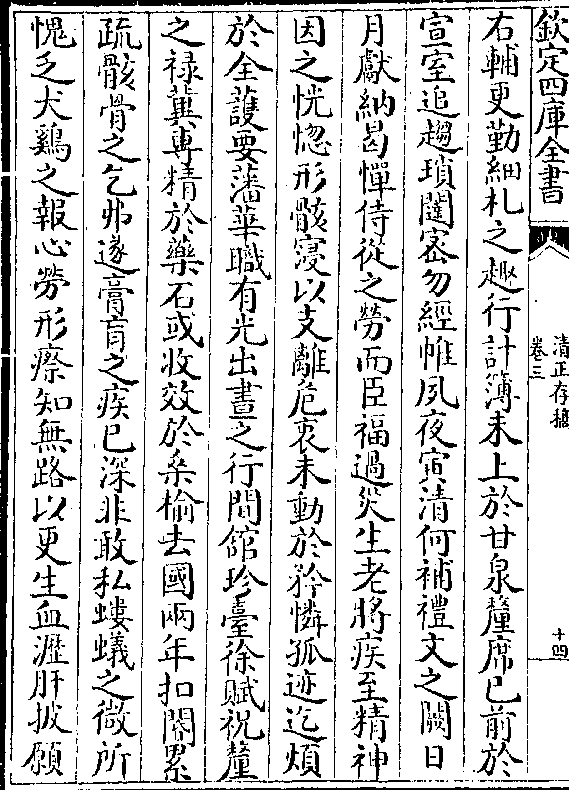 欽定四庫全書
清正存稿
卷三
十四
右輔更勤細札之趣行計簿未上於甘泉釐席已前於
宣室追趨瑣闥密勿經帷夙夜寅清何補禮文之闕日
月獻納曷憚侍從之勞而臣福過災生老將疾至精神
因之恍惚形骸寖以支離危衷未動於矜憐孤迹迄煩
於全護要藩華職有光出晝之行間舘珍臺徐賦祝釐
之禄冀専精於藥石或收效於桑榆去國兩年扣閽累
疏骸骨之乞弗遂膏肓之疾已深非敢私螻蟻之微所
愧乏犬鷄之報心勞形瘵知無路以更生血瀝肝披願